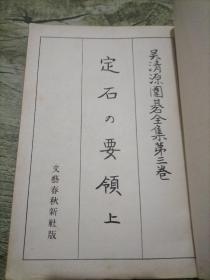 吳清源圍碁全集第三卷
定石の要領上
文藝春秋新社版